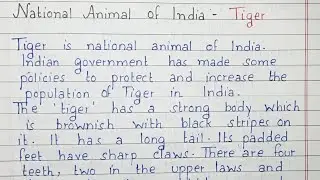 National Animal of India - Tiger
Tiger is national animal of India.
Indian government has made some
policies to protect and increase the
population of Tiger in India.
The 'tiger' has a strong body which
is brownish with black stripes on
it. It has a long tail. Its padded
feet have sharp claws. There are four
teeth, two in the upper laws and